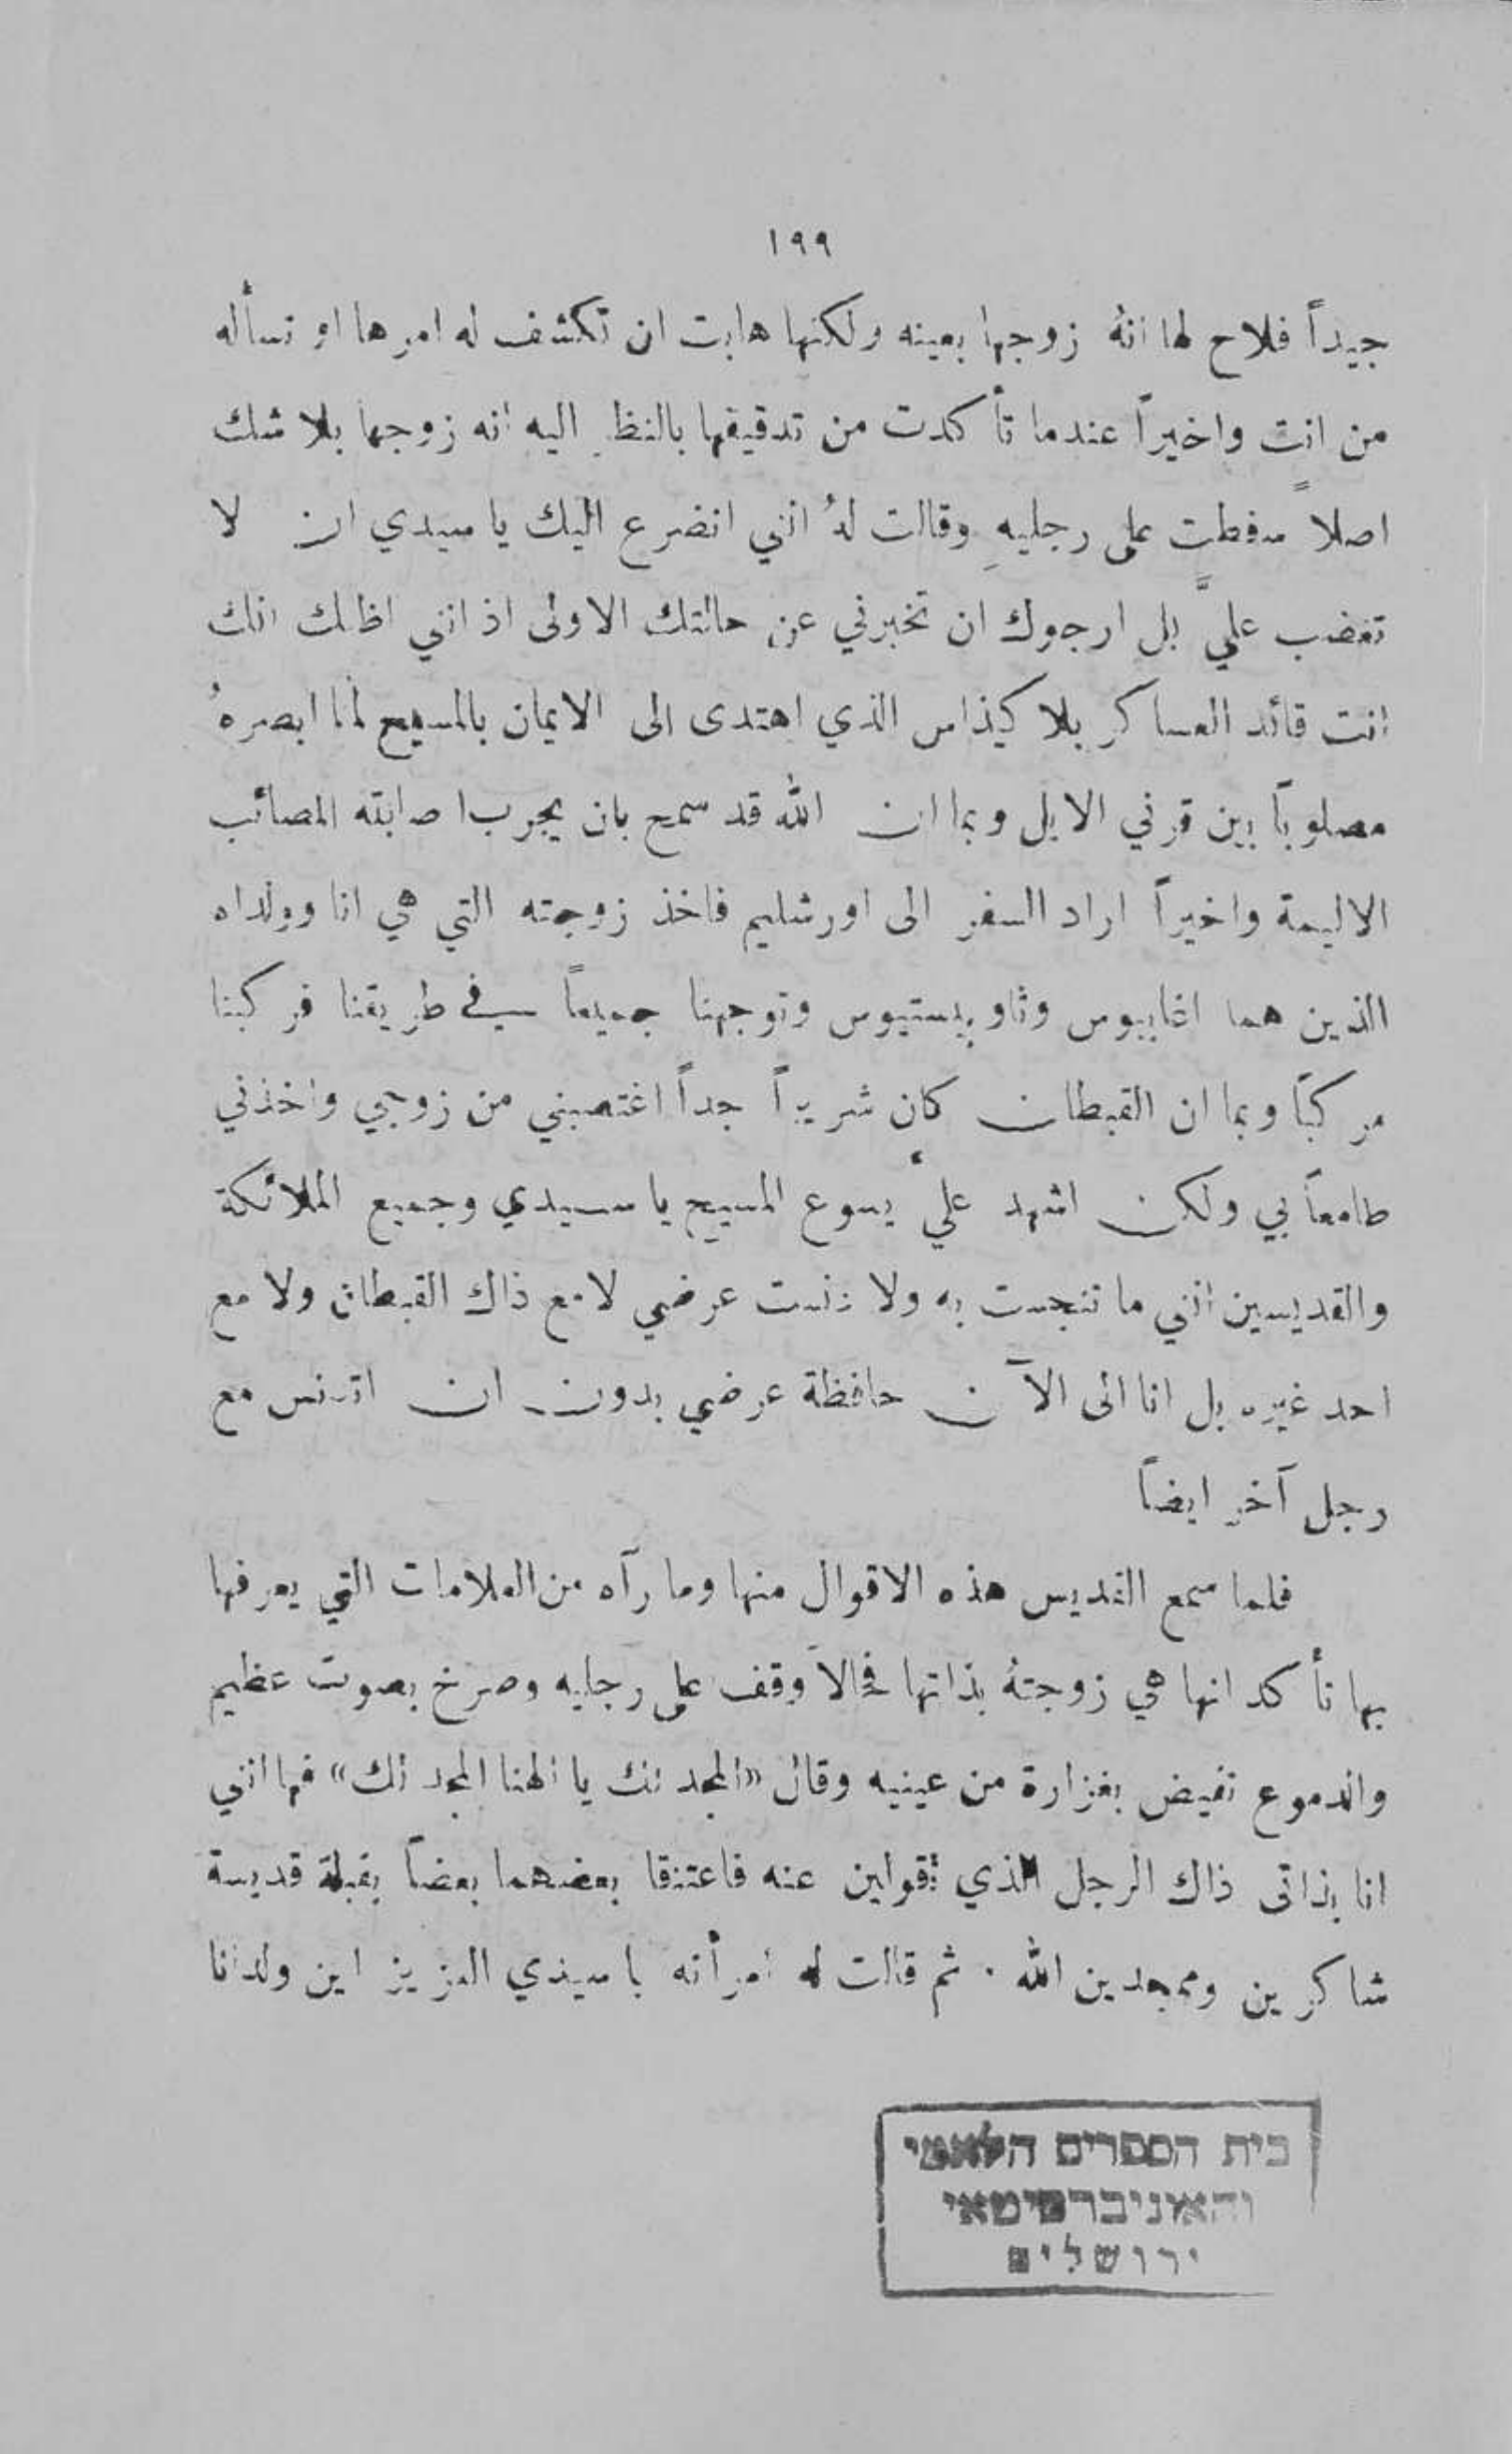 ١٩٩
جيداً فلاح لها انهُ زوجها بعينه ولكنها هابت ان تكشف له امرها او تسأله
من انت واخيراً عندما تأكدت من تدقيقها بالنظر اليه انه زوجها بلا شك
اصلاً سقطت على رجليهِ وقالت لهُ انني اتضرع اليك يا سيدي ان لا
تغضب عليَّ بل ارجوك ان تخبرني عن حالتك الاولى اذ انني اظنك انك
انت قائد العساكر بلاكيذاس الذي اهتدى الى الايمان بالمسيح لما ابصرهُ
مصلوباً بين قرني الايل وبما ان الله قد سمح بان يجرب اصابته المصائب
الاليمة واخيراً اراد السفر الى اورشليم فاخذ زوجته التي هي انا وولداه
الذين هما اغابيوس وثاوبيستيوس وتوجهنا جميعاً في طريقنا فركبنا
مركباً وبما ان القبطان كان شريراً جداً اغتصبني من زوجي واخذني
طامعاً بي ولكن اشهد عليَّ يسوع المسيح يا سيدي وجميع الملائكة
والقديسين انني ما تنجست به ولا دنست عرضي لا مع ذاك القبطان ولا مع
احد غيره بل انا الى الآن حافظة عرضي بدون ان اتدنس مع
رجل آخر ايضاً
فلما سمع القديس هذه الاقوال منها وما رآه من العلامات التي يعرفها
بها تأكد انها هي زوجتهُ بذاتها فحالاً وقف على رجليه وصرخ بصوت عظيم
والدموع تفيض بغزارة من عينيه وقال «المجد لك يا الهنا المجد لك» فها انني
انا بذاتى ذاك الرجل الذي تقولين عنه فاعتنقا بعضهما بعضاً بقبلة قديسة
شاكرين وممجدين الله . ثم قالت له امرأته يا سيدي العزيز اين ولدانا
בית הספרים הלאמי
והאוניברסיטאי
ירושלים